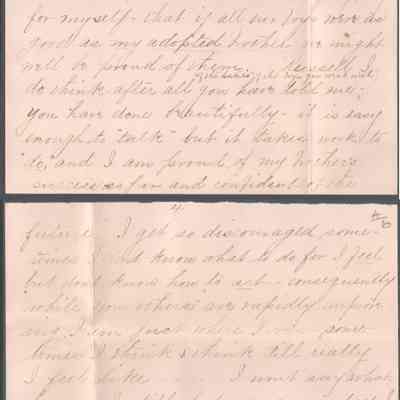 for myself - that if all our boys were as
good as my adopted brother we might
well be proud of them. Really I
do think after all you have told me,
you have done beautifully - it is easy
enough to "talk" but it takes work to
"do," and I am proud of my brother's
success so far and confident of the
4
future. I get so discouraged some-
times I dont know what to do for I feel
but dont know how to act - consequently
while you others are rapidly improv
ing I am just where I was some
times I think & think till really
I feel like I wont say what